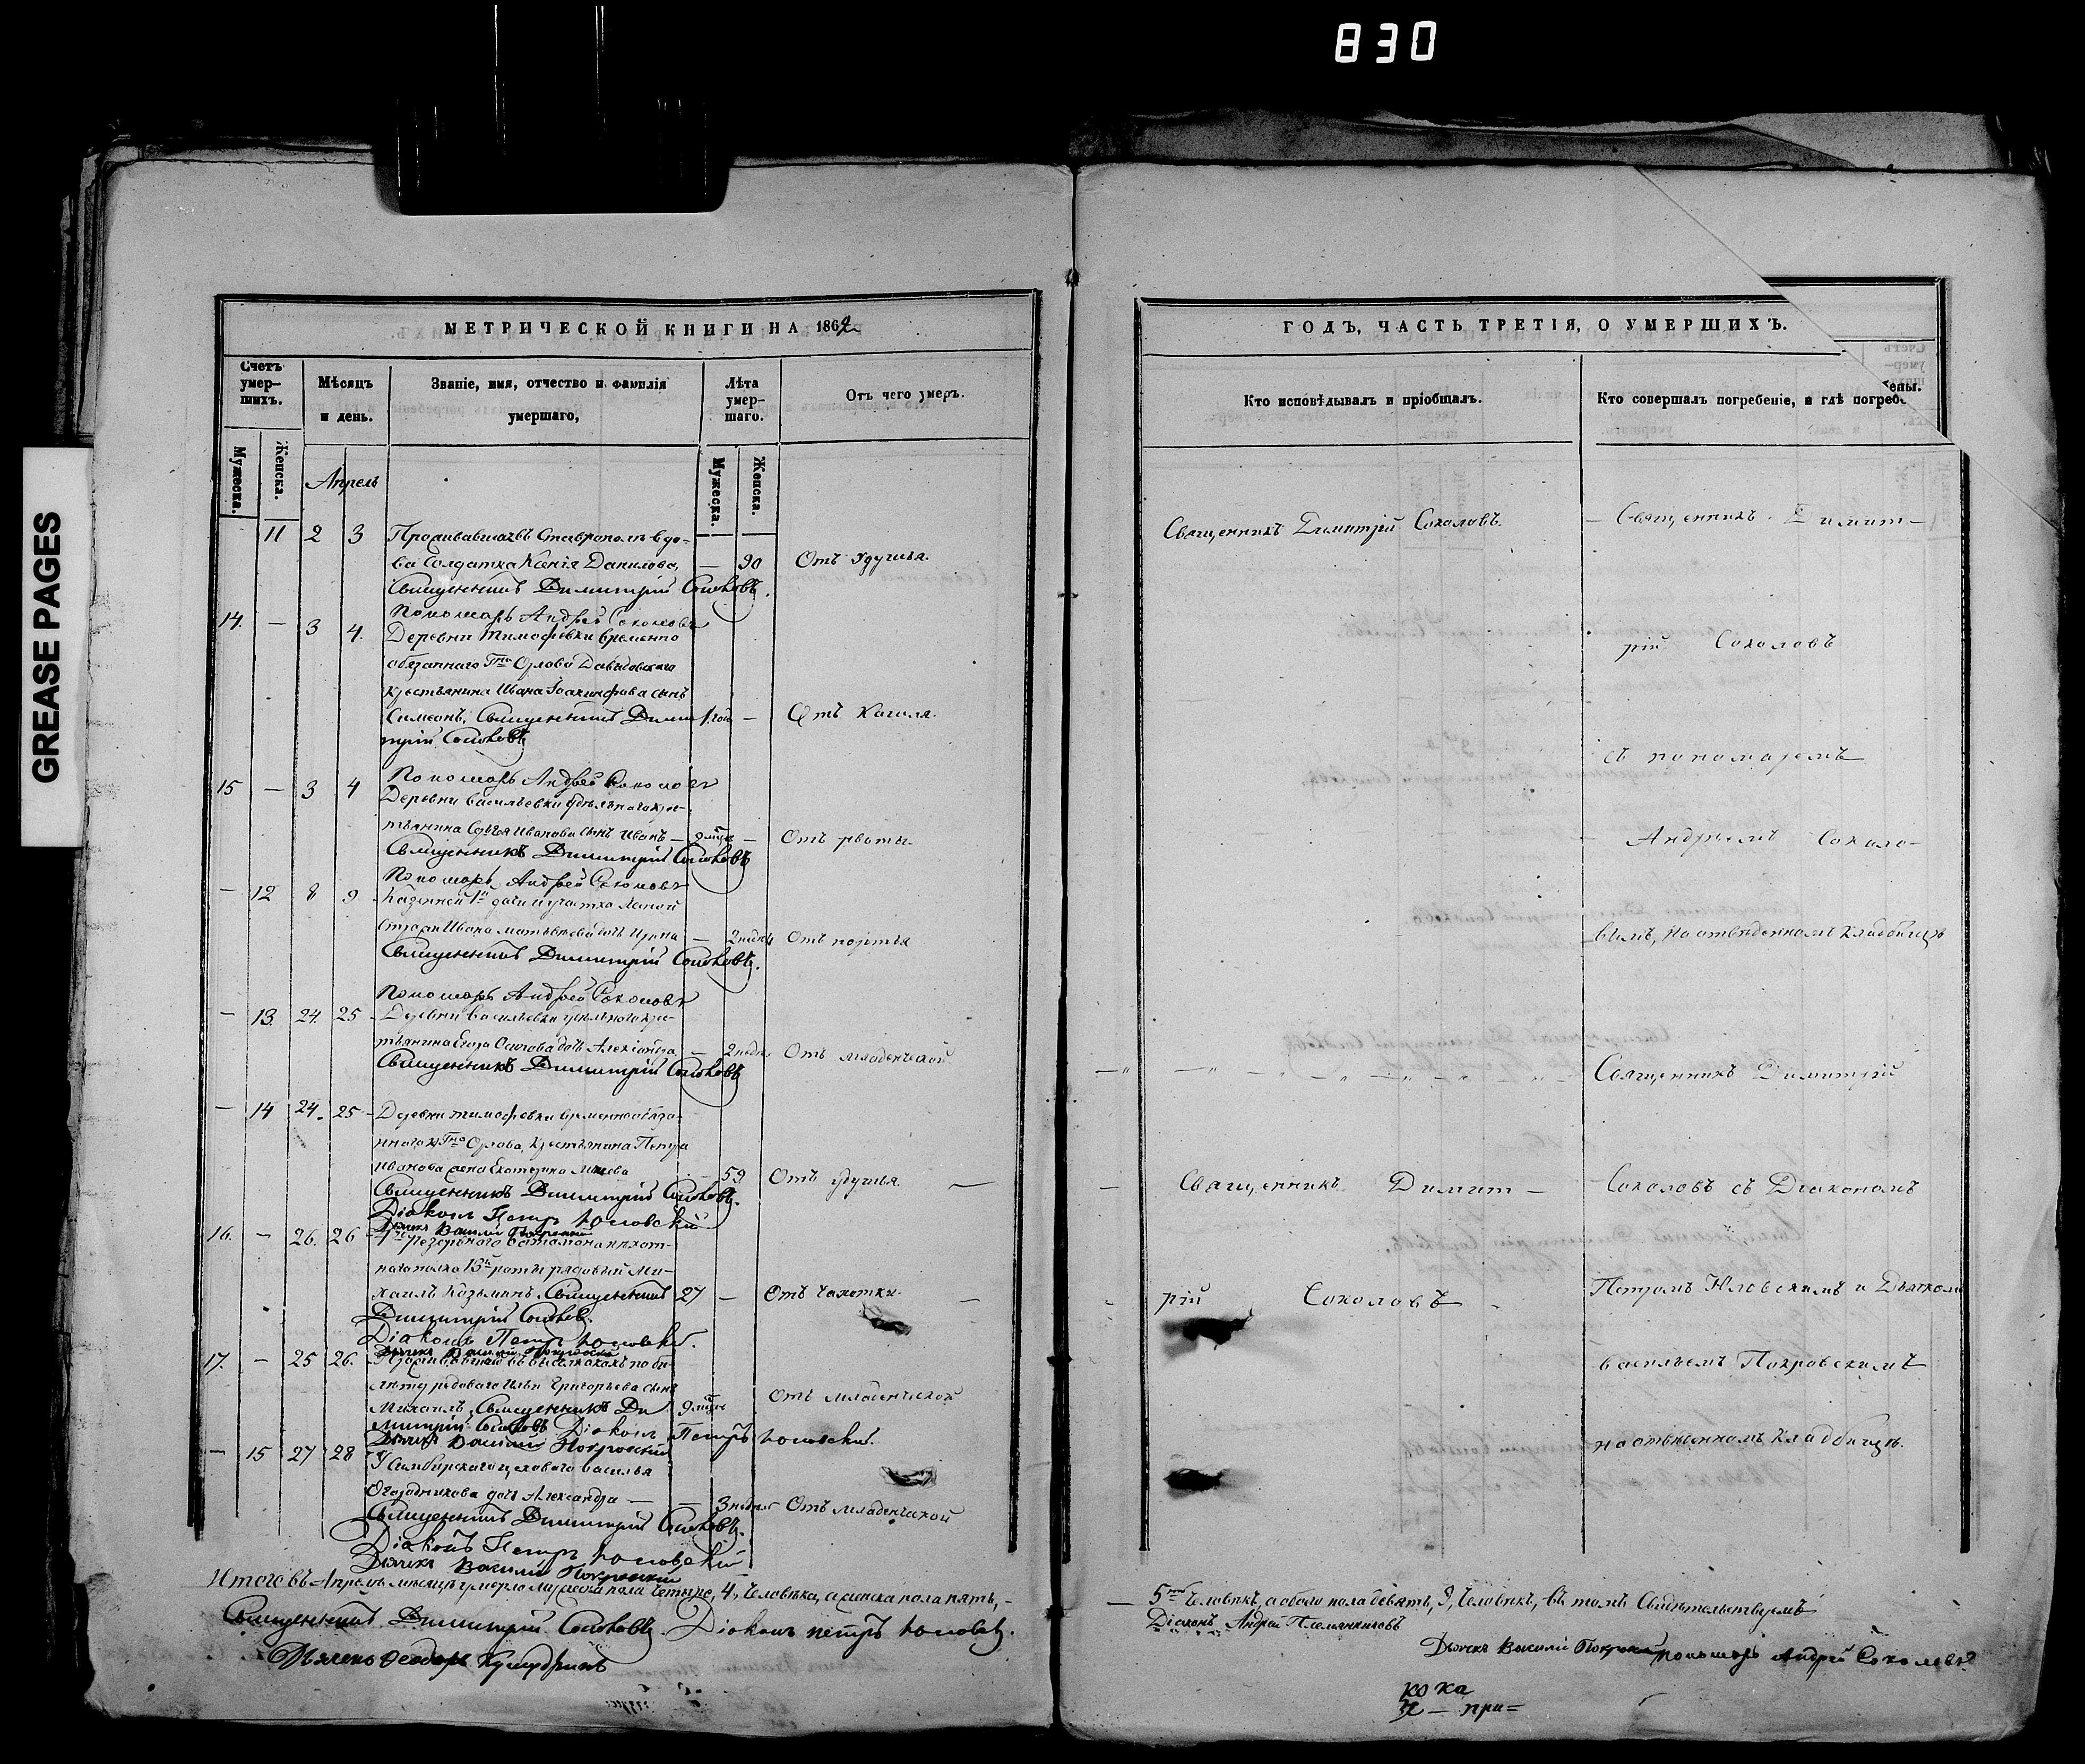 830
GREASE PAGES
МЕТРИЧЕСКОЙ КНИГИ НА 1862
Счетъ умер-шихъ.
Мѣсяцъ и день.
Званіе, имя, отчество и фамилія умершаго,
Лѣта умер-шаго.
Отъ чего умеръ.
Мужеска.
Женска.
Мужеска.
Женска.
Апрель
11 2 3 Проживавшая въ Ставрополѣ вдо-
ва Солдатка Ксенія Данилова, — 90 Отъ удушья.
Священникъ Димитрій Соколовъ.
Пономарь Андрей Соколовъ
14. — 3 4. Деревни Тимофеевки временно
обязаннаго Гна Орлова Давыдовскаго
крестьянина Ивана сынъ
Симеонъ, Священникъ Дими 1 годъ — Отъ Кашля.
трій Соколовъ
Пономарь Андрей Соколовъ
15 — 3 4 Деревни Васильевки удѣльнаго крес-
тьянина Сергѣя Иванова сынъ Иванъ — 9 — Отъ рвоты.
Священникъ Димитрій Соколовъ
Пономарь Андрей Соколовъ
— 12 8 9 Казенной
Ивана Матвѣева дочь Ирина — 2 недѣли
Священникъ Димитрій Соколовъ.
Пономарь Андрей Соколовъ
— 13. 24. 25 Деревни Васильевки удѣльнаго крес-
тьянина Егора Осипова дочь Александра — 2 недѣли Отъ младенческой
Священникъ Димитрій Соколовъ
— 14 24. 25 Деревни Тимофеевки временнообяза-
ннаго Гна Орлова, Крестьянина Петра
Иванова жена Екатерина — 59 Отъ удушья. —
Священникъ Димитрій Соколовъ.
Діаконъ Петръ
Дьячекъ Василій Покровскій
16. — 26. 26 резервнаго баталіона пѣхот-
наго полка 13й роты рядовый Ми-
хаилъ Козьминъ. Священникъ 27 — Отъ чахотки. —
Димитрій Соколовъ.
Діаконъ Петръ
Дьячекъ Василій Покровскій
17. — 25 26. по би-
лету рядоваго Ильи Григорьева сынъ
Михаилъ. Священникъ Ди 9 Отъ младенческой
митрій Соколовъ Діаконъ Петръ
Дьячекъ Василій Покровскій
— 15 27 28 Симбирскаго цеховаго Василья
Огородникова дочь Александра — — 3 недѣли Отъ младенческой
Священникъ Димитрій Соколовъ.
Діаконъ Петръ
Дьячекъ Василій Покровскій
Итого въ Апрелѣ мѣсяцѣ умерло мужеска пола четыре, 4, человѣка, а женска пола пять, -
Священникъ Димитрій Соколовъ. Діаконъ Петръ
Дьячекъ Ѳеодоръ
ГОДЪ, ЧАСТЬ ТРЕТІЯ, О УМЕРШИХЪ.
Кто исповѣдывалъ и пріобщалъ.
Кто совершалъ погребеніе, и гдѣ погребены.
Священникъ Димитрій Соколовъ. Священникъ Димит-
рій Соколовъ
съ пономаремъ
Андреемъ Соколо-
вымъ, на отведенномъ кладбищѣ
Священникъ Димитрій
Священникъ Димит- Соколовъ съ Діакономъ
рій Соколовъ Петромъ и Дьячкомъ
Васильемъ Покровскимъ
на отведенномъ кладбищѣ.
5 человѣкъ, а обоего пола девять, 9, человѣкъ, въ томъ свидѣтельствуемъ
Діаконъ Андрей Племянниковъ
Дьячекъ Василій Покровскій пономарь Андрей Соколовъ
ко ка
— при=